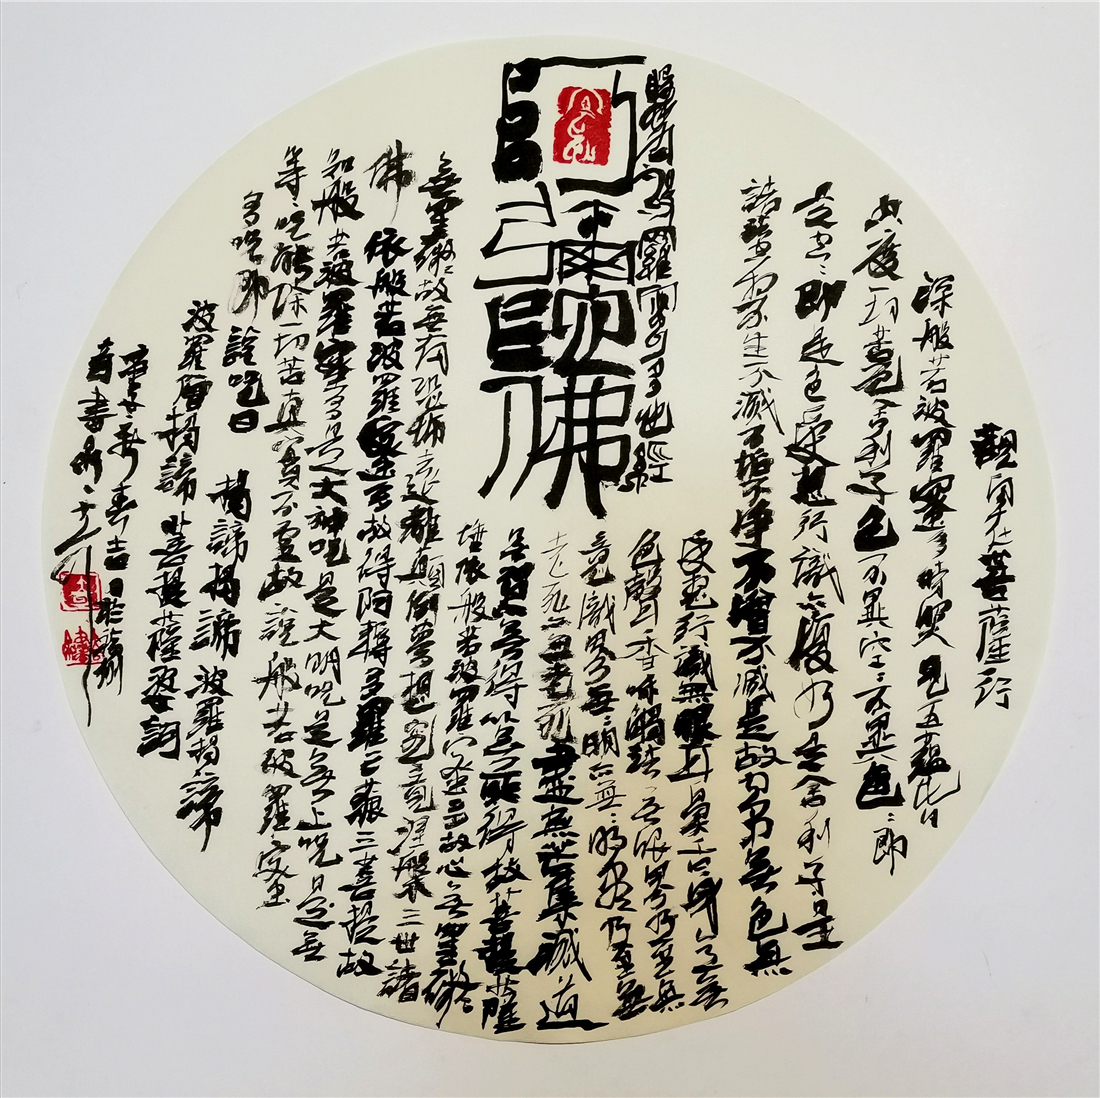 阿彌陀佛
般若波羅蜜多心經
觀自在菩薩行
深般若波羅蜜多時照見五蘊皆
空度一切苦厄舍利子色不異空空不異色色即
是空空即是色受想行識亦復如是舍利子是
諸法空相不生不滅不垢不淨不增不減是故空中無色無
受想行識無眼耳鼻舌身意無
色聲香味觸法無眼界乃至無
意識界無無明亦無無明盡乃至無
老死亦無老死盡無苦集滅道
無智亦無得以無所得故菩提薩
埵依般若波羅蜜多故心無罣礙
無罣礙故無有恐怖遠離顛倒夢想究竟涅槃三世諸
佛依般若波羅蜜多故得阿耨多羅三藐三菩提故
知般若波羅蜜多是大神咒是大明咒是無上咒是無
等等咒能除一切苦真實不虛故說般若波羅蜜
多咒即說咒曰揭諦揭諦波羅揭諦
波羅僧揭諦菩提薩婆訶
春吉日於蘇州